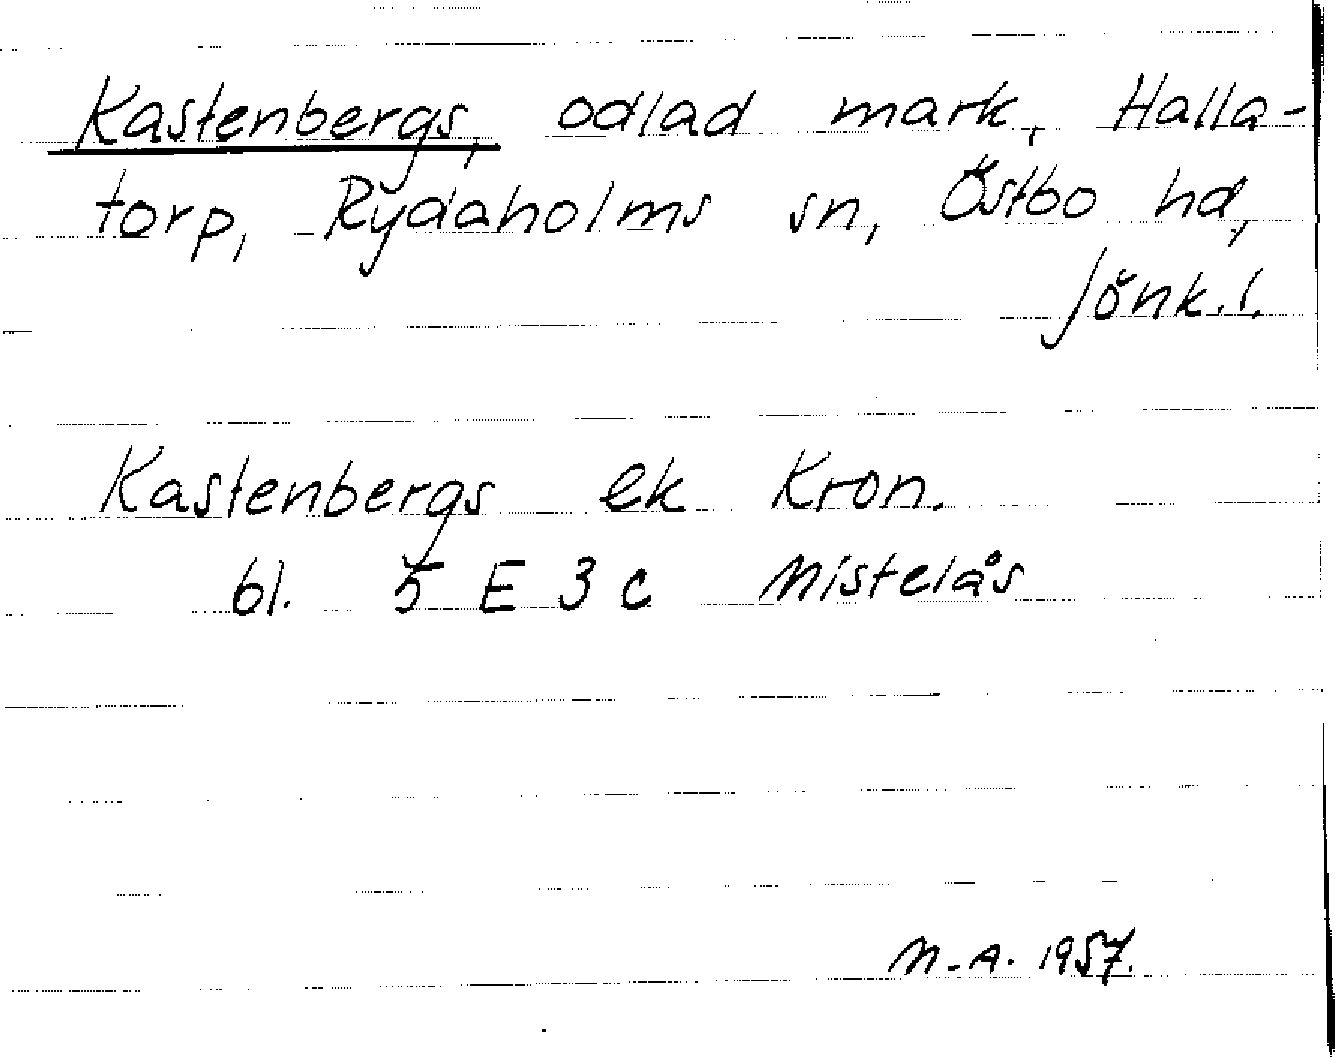 Kastenbergs, odlad mark, Halla-
torp, Rydaholms sn, Östbo hd,
Jönk.l.
Kastenbergs ek Kron.
bl. 5 E 3 c Mistelås
M.A. 1957.